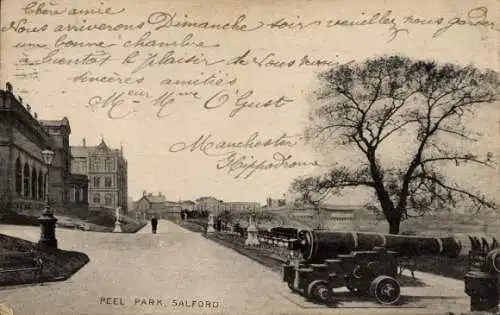 Chère amie
Nous arriverons Dimanche soir veuillez nous garder
une bonne chambre
à bientôt le plaisir de vous revoir
sincères amitiés
Mr et Mme O'Gust
Manchester
Hippodrome
PEEL PARK, SALFORD